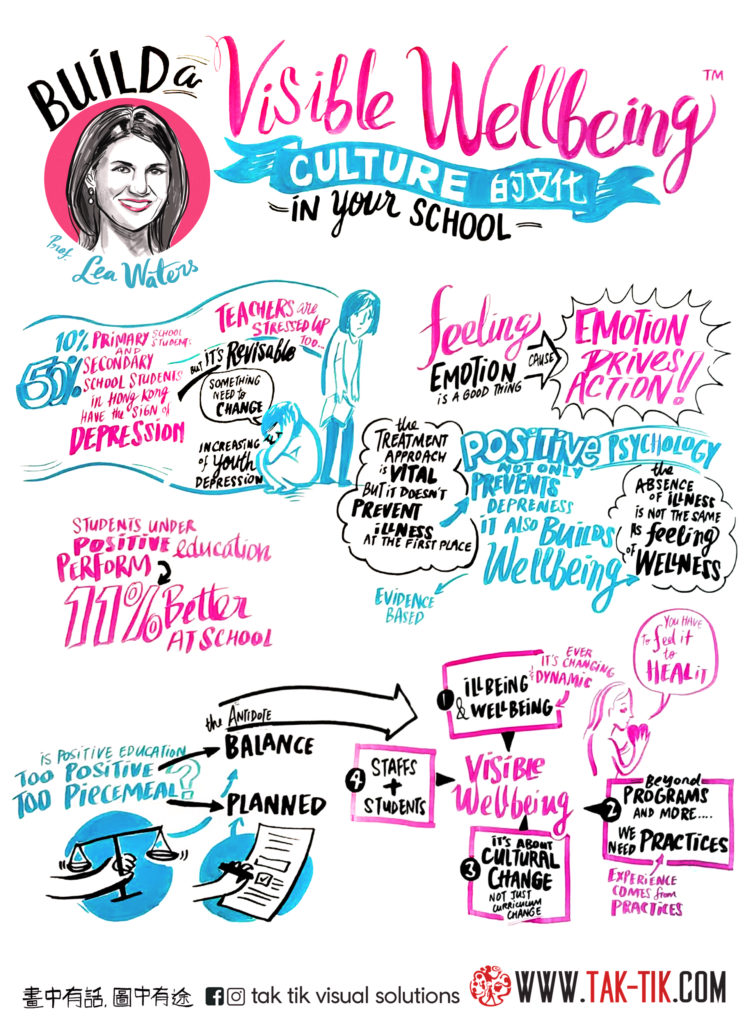 BUILD a Visible Wellbeing ™
CULTURE 的文化
IN your SCHOOL
Prof. Lea Waters
10% PRIMARY SCHOOL STUDENTS
AND
50% SECONDARY
SCHOOL STUDENTS
IN HONG KONG
HAVE the SIGN of
DEPRESSION
TEACHERS are
STRESSED UP
TOO...
BUT IT'S REVISABLE
SOMETHING
NEED to
CHANGE
INCREASING
of YOUTH
DEPRESSION
feeling
EMOTION
IS A GOOD THING
CAUSE
EMOTION
DRIVES
ACTION!!
the
TREATMENT
APPROACH
is VITAL
BUT IT DOESN'T
PREVENT
ILLNESS
AT THE FIRST PLACE
POSITIVE PSYCHOLOGY
NOT ONLY
PREVENTS
DEPRENESS
IT ALSO BUILDS
Wellbeing
EVIDENCE
BASED
the
ABSENCE
OF ILLNESS
IS NOT THE SAME
AS feeling
OF WELLNESS
STUDENTS UNDER
POSITIVE education
PERFORM
11% Better
AT SCHOOL
YOU HAVE
To feel it
to
HEAL it
IS POSITIVE EDUCATION
TOO POSITIVE
TOO PIECEMEAL?
the ANTIDOTE
BALANCE
PLANNED
EVER
IT'S CHANGING
& DYNAMIC
1 ILLBEING
& WELLBEING
VISIBLE
Wellbeing
4 STAFFS
+
STUDENTS
2 Beyond
PROGRAMS
AND MORE....
WE
NEED PRACTICES
EXPERIENCE
COMES from
PRACTICES
3 IT'S ABOUT
CULTURAL
CHANGE
NOT JUST
CURRICUCUM
CHANGE
畫中有話, 圖中有途 tak tik visual solutions WWW.TAK-TIK.COM